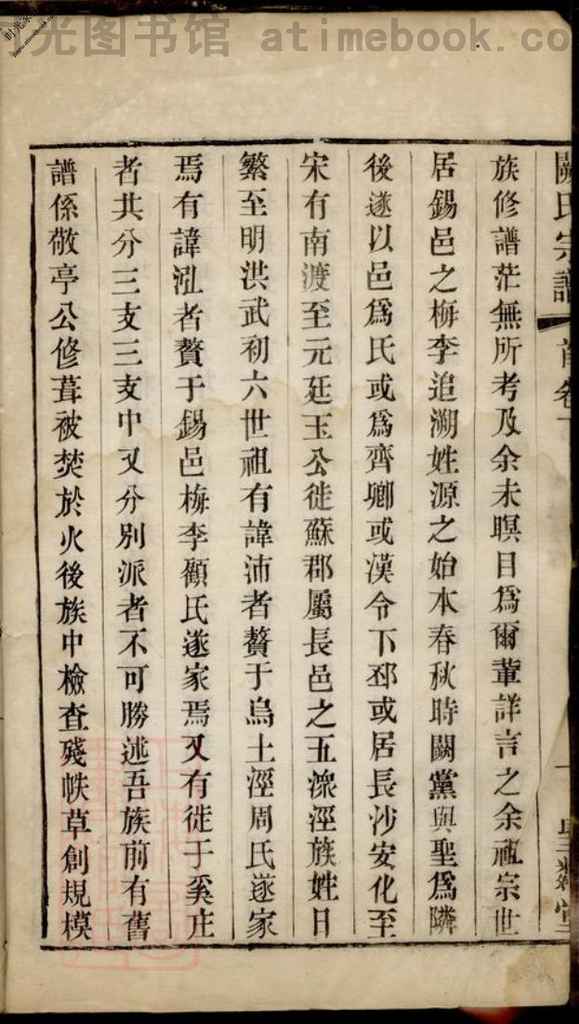 光图书馆 atimebook.co
闕氏宗譜 首卷
族修譜茫無所考及余未瞑目為爾輩詳言之余祖宗世
居錫邑之梅李追溯姓源之始本春秋時闕黨與聖為隣
後遂以邑為氏或為齊卿或漢令下邳或居長沙安化至
宋有南渡至元廷玉公徙蘇郡屬長邑之五潨涇族姓日
繁至明洪武初六世祖有諱沛者贅于烏土涇周氏遂家
焉有諱泓者贅于錫邑梅李顧氏遂家焉又有徙于奚庄
者共分三支三支中又分別派者不可勝述吾族前有舊
譜係敬亭公修葺被焚於火後族中檢查殘帙草創規模